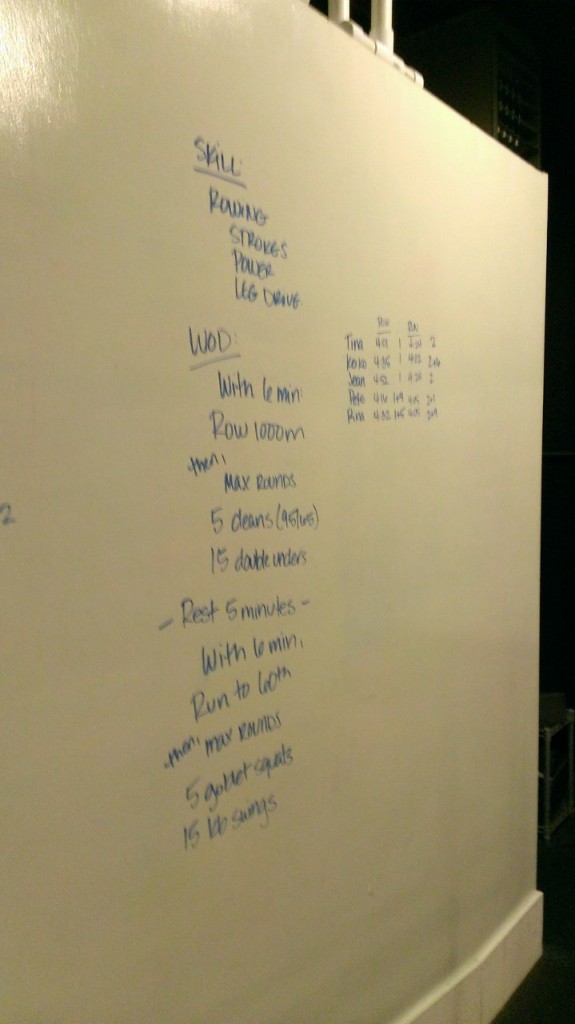 SKILL:
ROWING
STROKES
POWER
LEG DRIVE
WOD:
With 6 min:
Row 1000m
then,
MAX ROUNDS
5 cleans (95/65)
15 double unders
- Rest 5 minutes -
With 6 min,
Run to 60th
then, max ROUNDS
5 goblet squats
15 kb swings
Tina 1 2
Koko 4:35 1
Jean 4:52 1 2
Pete
Rina 4:32
2